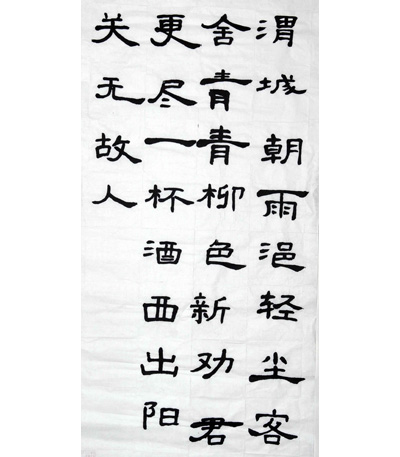 渭城朝雨浥轻尘客
舍青青柳色新劝君
更尽一杯酒西出阳
关无故人